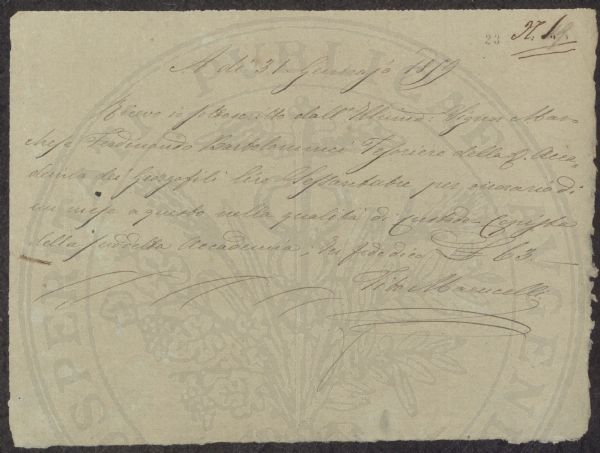 23 N. 
A dì 31 Gennajo 1859
Ricevo io sottoscritto dall'Illumo: Signor Mar-
chese Ferdinando Bartolommei Tesoriere della R. Acca-
demia dei Georgofili lire Sessantatre per onorario di
un mese a questo nella qualità di Custode Copista
della suddetta Accademia; In fede dico £ 63.—
Tito Marucelli
PROSPERITATI PUBLICAE AUGENDAE